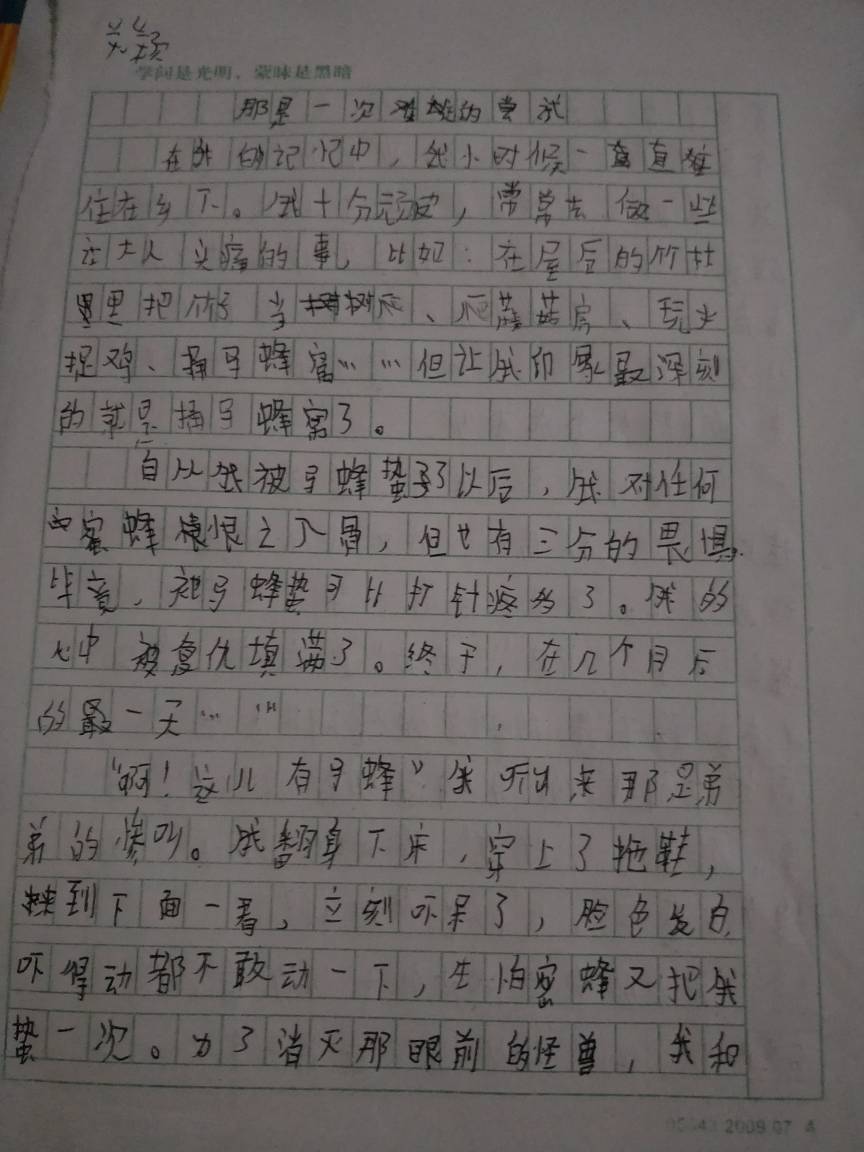 学问是光明，蒙昧是黑暗
那是一次难忘的尝试
在我的记忆中，我小时候一直
住在乡下。我十分顽皮，常常去做一些
让大人头痛的事，比如：在屋后的竹林
里把竹子当树爬、爬蘑菇房、玩火
捉鸡、捅马蜂窝……但让我印象最深刻
的就是捅马蜂窝了。
自从我被马蜂蛰了以后，我对任何
的蜜蜂恨之入骨，但也有三分的畏惧。
毕竟，被马蜂蛰可比打针疼多了。我的
心中被复仇填满了。终于，在几个月后
的最一天……
“啊！这儿有马蜂”我听出来那是弟
弟的惨叫。我翻身下床，穿上了拖鞋，
跑到下面一看，立刻吓呆了，脸色发白
吓得动都不敢动一下，生怕蜜蜂又把我
蛰一次。为了消灭那眼前的怪兽，我和
05643 2009.07 A